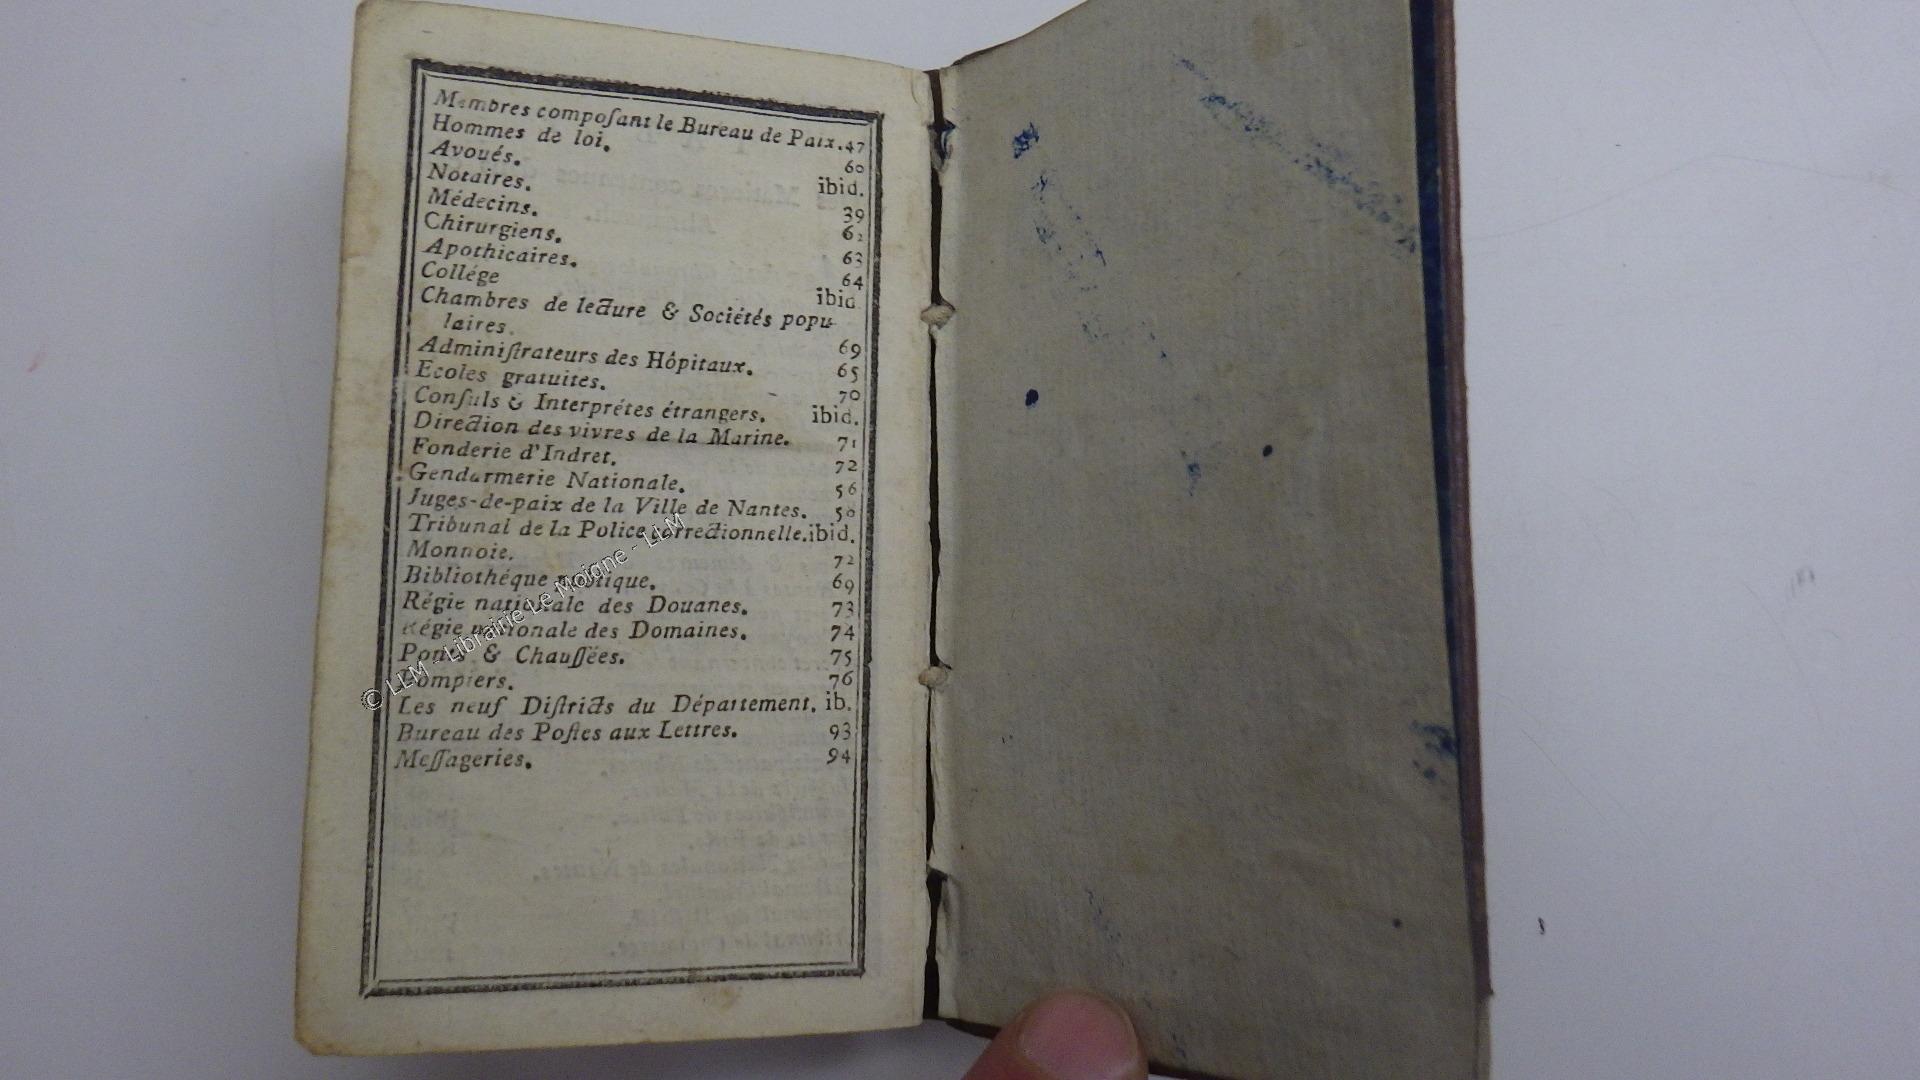 Membres compoſant le Bureau de Paix. 47
Hommes de loi. 60
Avoués. ibid.
Notaires. 39
Médecins. 62
Chirurgiens. 63
Apothicaires. 64
Collége ibid
Chambres de lecture & Sociétés popu-
laires. 69
Adminiſtrateurs des Hôpitaux. 65
Ecoles gratuites. 70
Conſuls & Interprétes étrangers. ibid.
Direction des vivres de la Marine. 71
Fonderie d'Indret. 72
Gendarmerie Nationale. 56
Juges-de-paix de la Ville de Nantes. 50
Tribunal de la Police correctionnelle. ibid.
Monnoie. 72
Bibliothéque publique. 69
Régie nationale des Douanes. 73
Régie nationale des Domaines. 74
Ponts & Chauſſées. 75
Pompiers. 76
Les neuf Diſtricts du Département. ib.
Bureau des Poſtes aux Lettres. 93
Meſſageries. 94
© LLM - Librairie Le Moigne - LLM